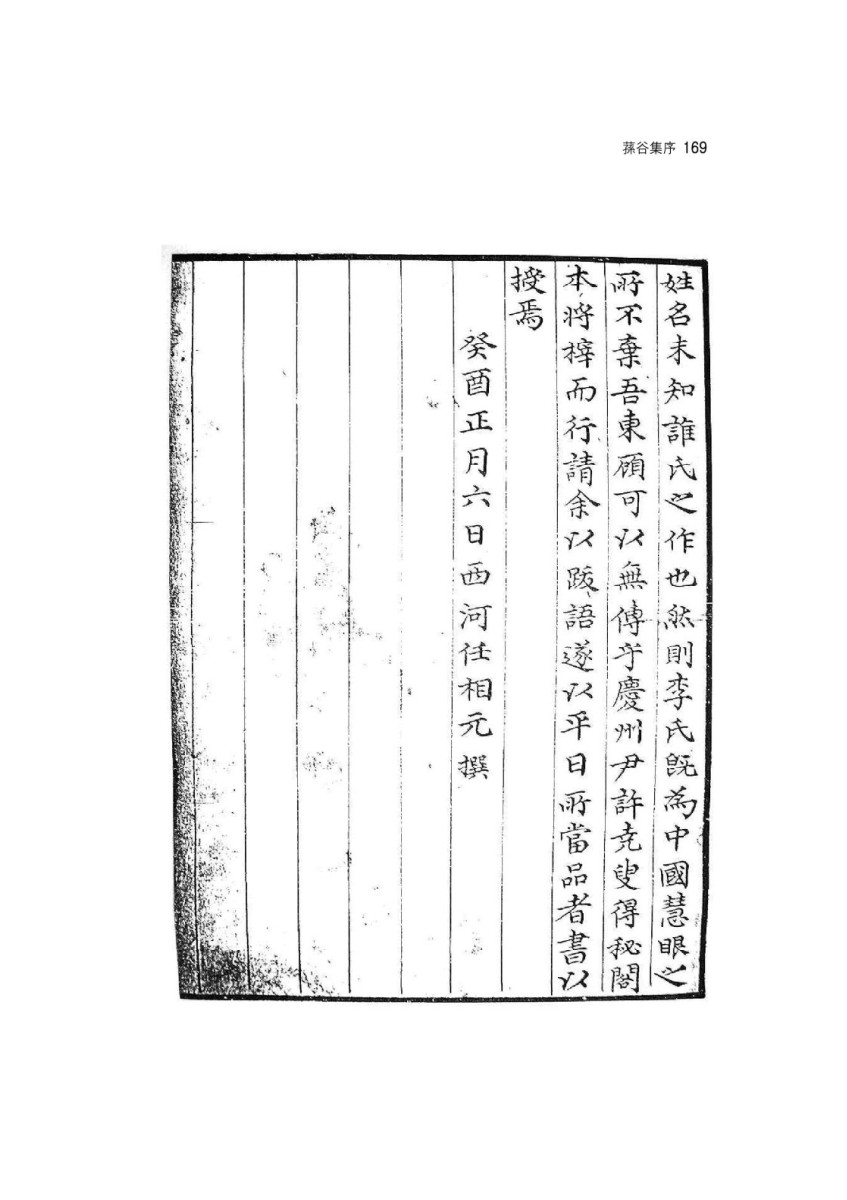 蓀谷集序 169
姓名未知誰氏之作也然則李氏旣為中國慧眼之
所不棄吾東顧可以無傳乎慶州尹許堯叟得秘閣
本將梓而行請余以跋語遂以平日所嘗品者書以
授焉
癸酉正月六日西河任相元撰